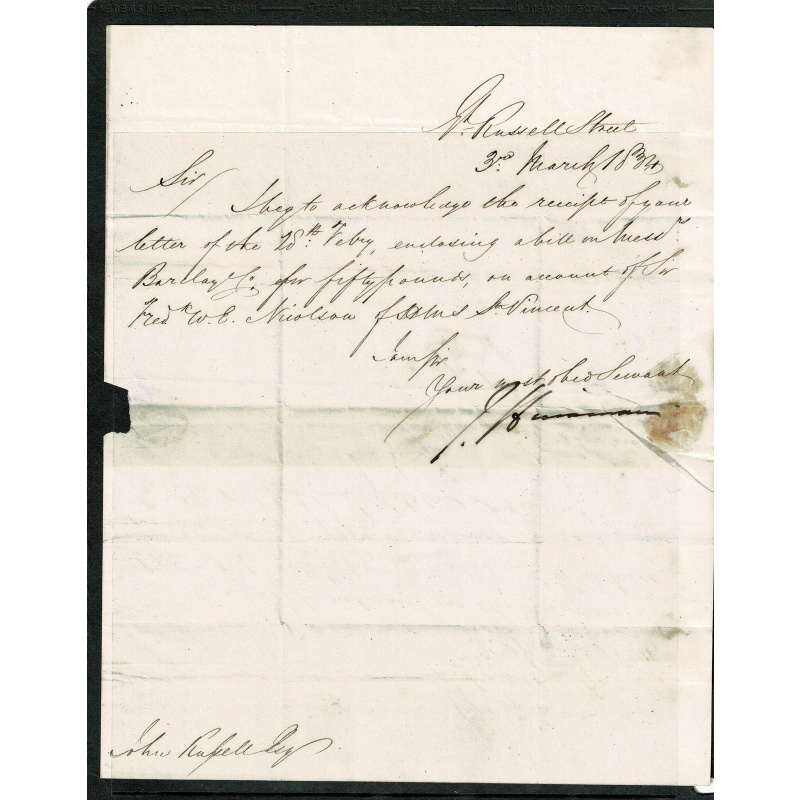 Gt. Russell Street
3rd March 1834
Sir
I beg to acknowledge the receipt of your
letter of the 28th. Feby, enclosing a bill on Messrs.
Barclay & Co. for fifty pounds, on account of Sir
Fredk W. E. Nicolson of HMS St Vincent.
I am Sir
Your most obed Servant
J.
John Russell Esq